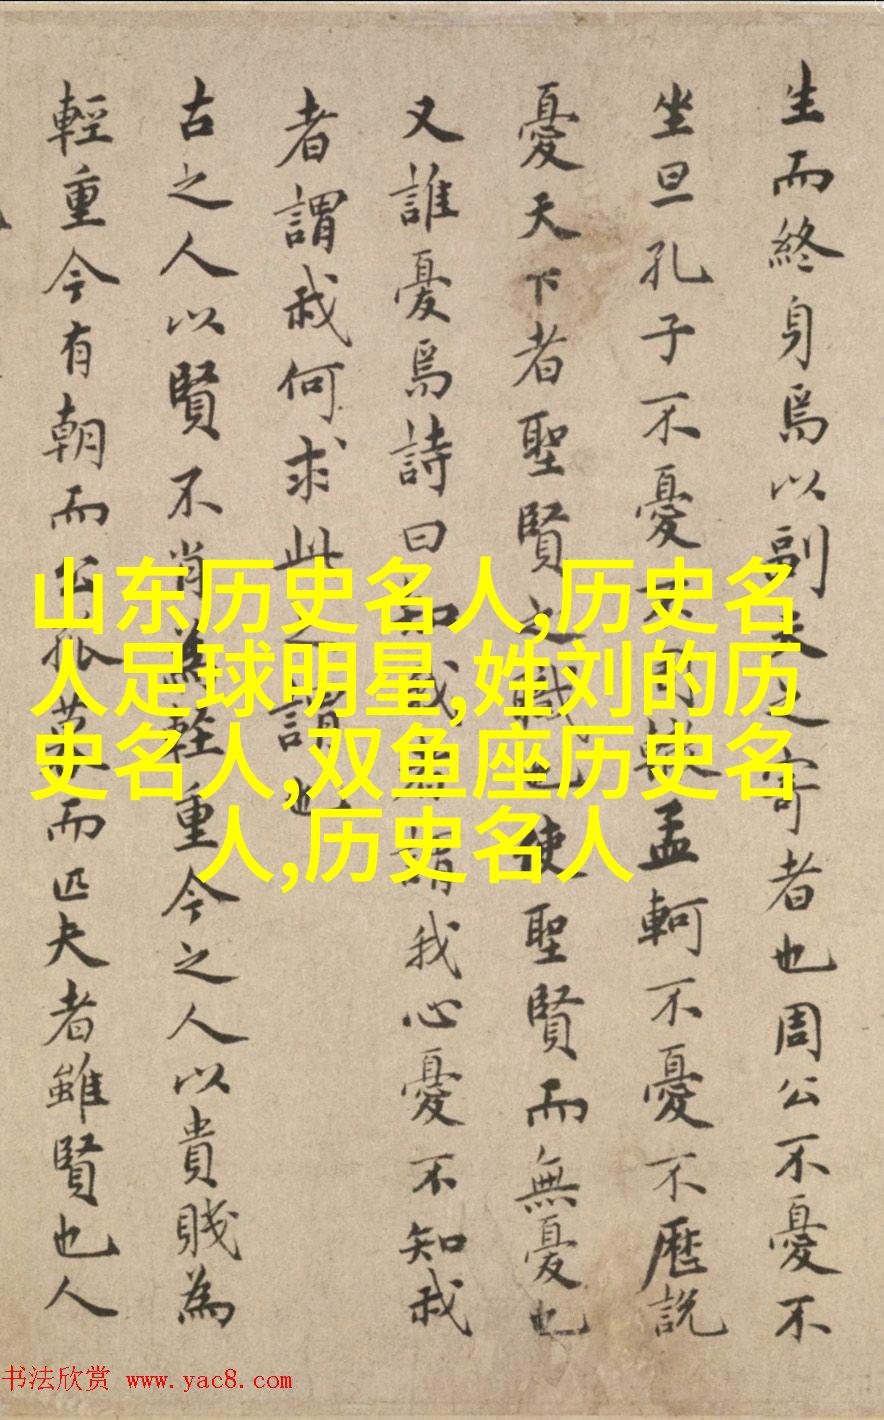 生而終身焉以副天之寄者也周公不憂不
坐旦孔子不憂不司寇孟軻不憂不歷說
憂天下者聖賢之職也使聖賢而無憂也
又誰憂焉詩曰知我者謂我心憂不知我
者謂我何求此之謂也
古之人以賢不肖為輕重今之人以貴賤為
輕重今有朝而公孤暮而匹夫者雖賢也人
山东历史名人,历史名
人足球明星,姓刘的历
史名人,双鱼座历史名
人,历史名人
书法欣赏 www.yac8.com